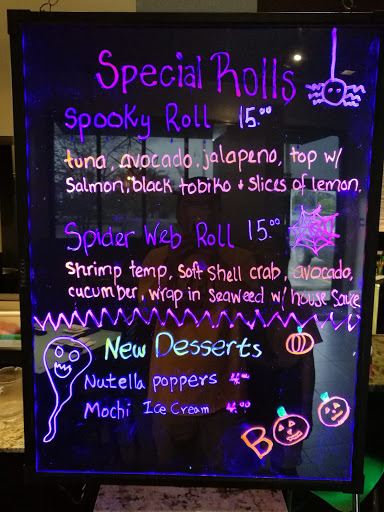 Special Rolls
Spooky Roll 15.00
tuna, avocado, jalapeno, top w/
Salmon, black tobiko + slices of lemon.
Spider Web Roll 15.00
Shrimp temp, soft shell crab, avocado,
cucumber, wrap in seaweed w/ house sauce
New Desserts
Nutella poppers 4.00
Mochi Ice Cream 4.00
Boo